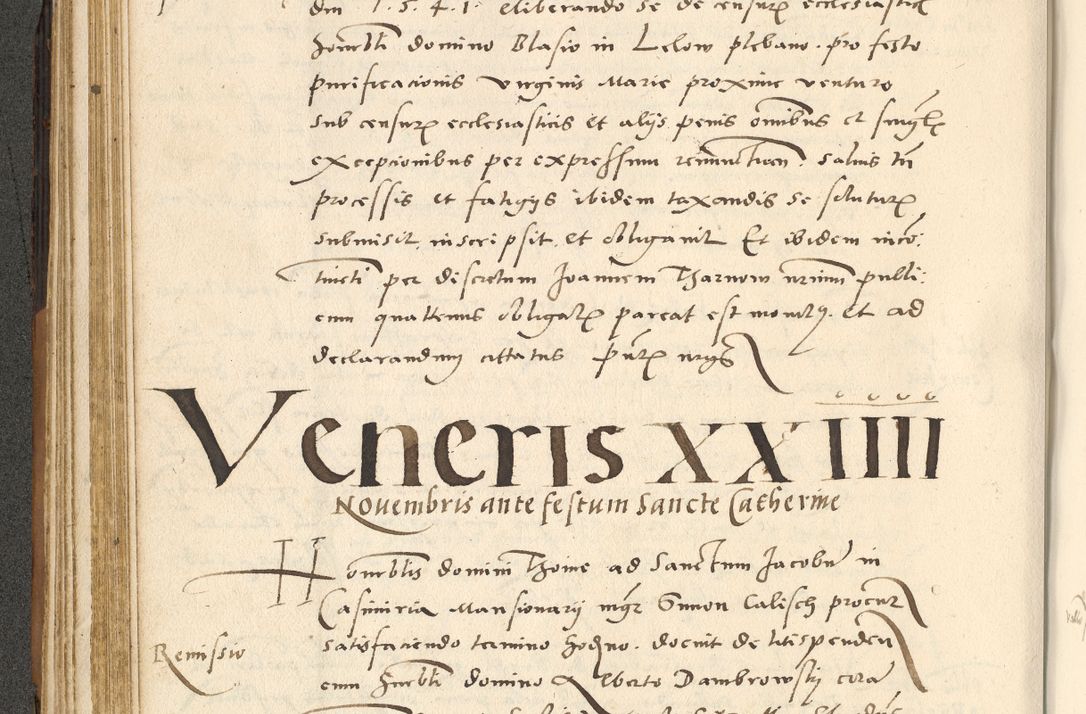 dni 1.5.4.1. eliberando se de censur ecclesiastic
honorbli domino Blasio in Lelow plebano. pro festo
purificacionis virginis Marie proxime venturo
sub censur ecclesiasticis et alijs penis omnibus et
exceptionibus per expressum renunctian. saluis tn
processis et fatigijs ibidem taxandis se soluturz
submisit, inscripsit, et obligauit Et ibidem
per discretum Joannem Tharnow publi:
cum quattenus obligatz pareat est et ad
declarandum cittatus
Veneris xxiiii
Nouembris ante festum Sancte Catherine
Honorblis domini Thome ad Sanctum Jacobu in
Casimiria Mansionarij mgr Simon Calisch procur
satisfaciendo termino hodno. docuit de litispenden
Remissio
cum honorbli domino Alberto Dambrowskj cora